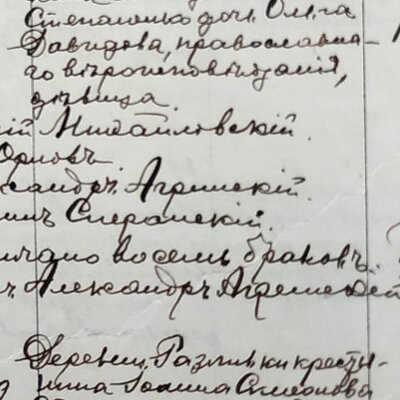 дочь Ольга
Давидова, православна-
го вѣроисповѣданія,
дѣвица.
ній Михайловскій.
Орловъ.
ксандръ Агринскій.
Сперанскій.
нчано восемь браковъ.
Александръ Агринскій
Деревни крестья-
нина Іоанна Симеонова